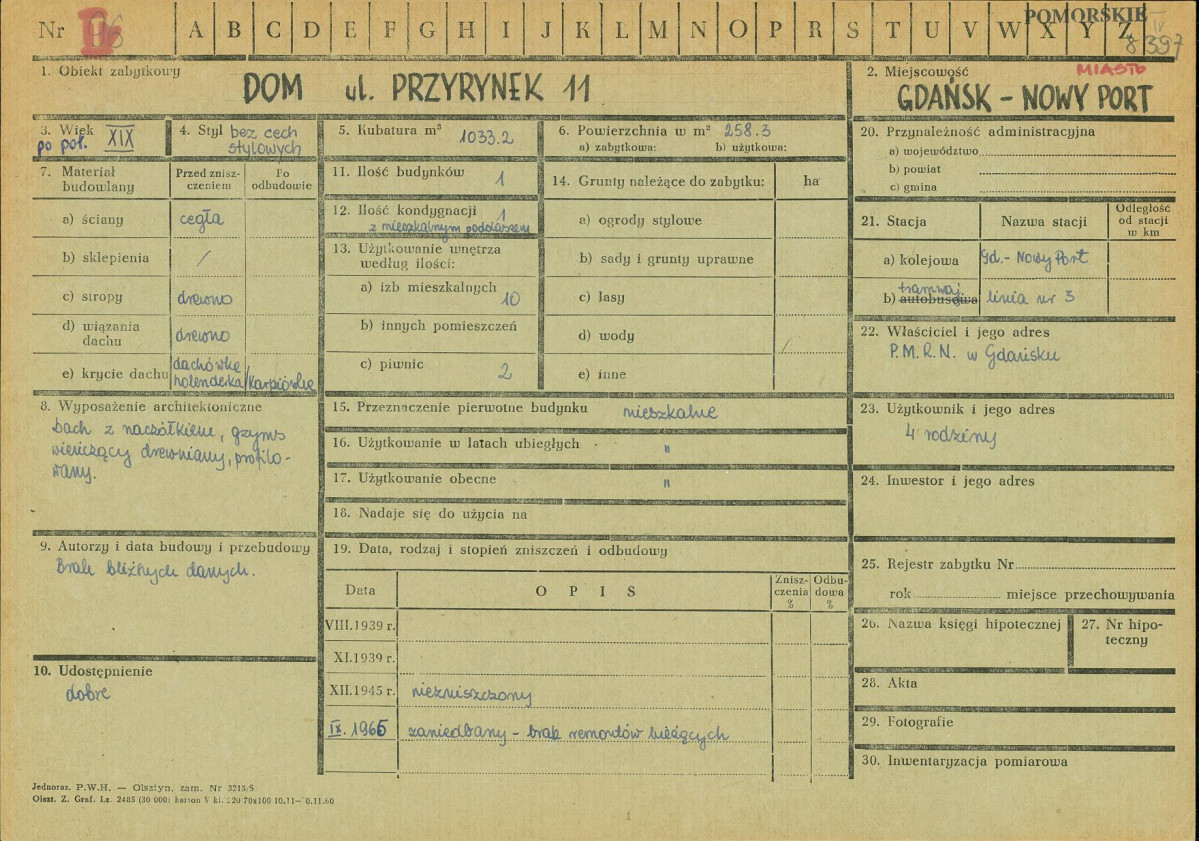 Nr 96 A B C D E F G H I J K L Ł M N O P R S T U V W X Y Z
POMORSKIE
8397
1. Obiekt zabytkowy
DOM ul. PRZYRYNEK 11
2. Miejscowość
MIASTO
GDAŃSK - NOWY PORT
3. Wiek
po poł. XIX
4. Styl bez cech
stylowych
5. Kubatura m³ 1033.2
6. Powierzchnia w m² 258.3
a) zabytkowa: b) użytkowa:
7. Materiał
budowlany
Przed znisz-
czeniem
Po
odbudowie
a) ściany cegła
b) sklepienia /
c) stropy drewno
d) wiązania
dachu drewno
e) krycie dachu dachówka
holenderka/karpiówka
8. Wyposażenie architektoniczne
Dach z naczółkiem, gzyms
wieńczący drewniany, profilo-
wany.
9. Autorzy i data budowy i przebudowy
Brak bliższych danych.
10. Udostępnienie
dobre
11. Ilość budynków 1
12. Ilość kondygnacji 1
z mieszkalnym poddaszem
13. Użytkowanie wnętrza
według ilości:
a) izb mieszkalnych 10
b) innych pomieszczeń
c) piwnic 2
14. Grunty należące do zabytku: ha
a) ogrody stylowe
b) sady i grunty uprawne
c) lasy
d) wody /
e) inne
15. Przeznaczenie pierwotne budynku mieszkalne
16. Użytkowanie w latach ubiegłych "
17. Użytkowanie obecne "
18. Nadaje się do użycia na
19. Data, rodzaj i stopień zniszczeń i odbudowy
Data OPIS Znisz-
czenia
% Odbu-
dowa
%
VIII.1939 r.
XI.1939 r.
XII.1945 r. niezniszczony
IX.1965 zaniedbany - brak remontów bieżących
20. Przynależność administracyjna
a) województwo
b) powiat
c) gmina
21. Stacja Nazwa stacji Odległość
od stacji
w km
a) kolejowa Gd.- Nowy Port
tramwaj.
b) autobusowa linia nr 3
22. Właściciel i jego adres
P.M.R.N. w Gdańsku
23. Użytkownik i jego adres
4 rodziny
24. Inwestor i jego adres
25. Rejestr zabytku Nr
rok miejsce przechowywania
26. Nazwa księgi hipotecznej
27. Nr hipo-
teczny
28. Akta
29. Fotografie
30. Inwentaryzacja pomiarowa
Jednoraz. P.W.H. — Olsztyn. zam. Nr 3215/S
Olszt. Z. Graf. Lz. 2485 (30 000) karton V kl. 220 70x100 10.11-